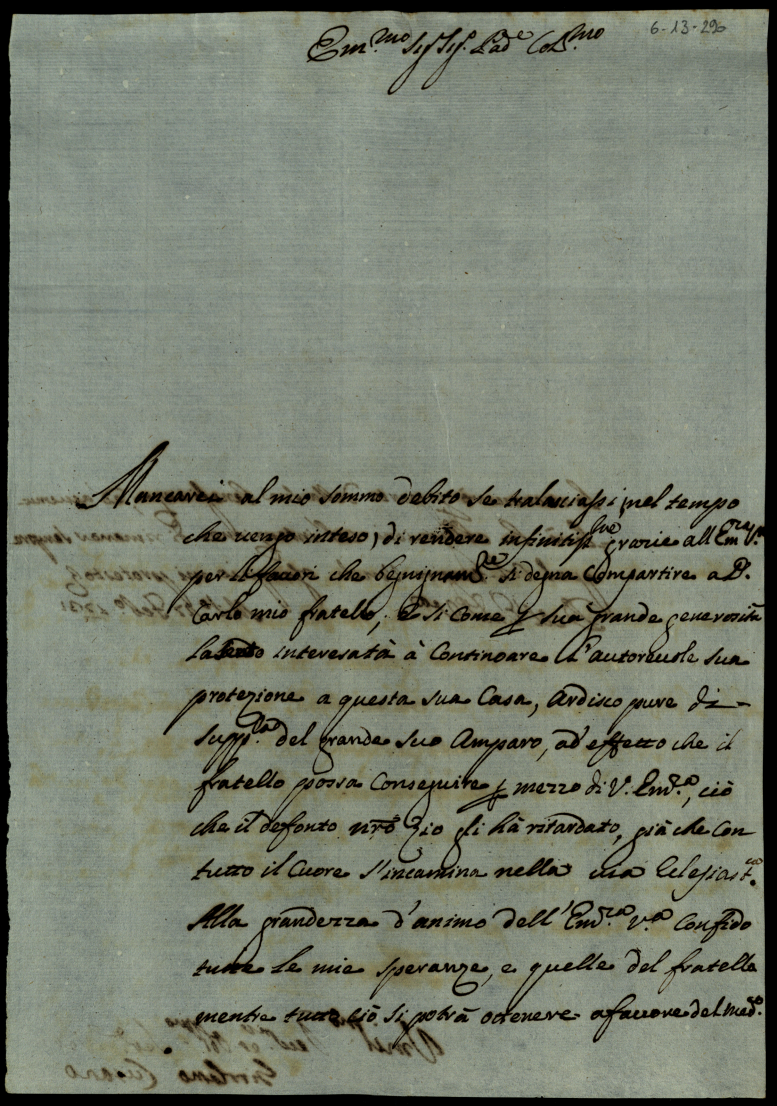 6-13-296
Em.mo Sig. Sig. Pad.e Col.mo
Mancarei al mio sommo debito se tralasciassi, nel tempo
che vengo inteso, di rendere infinitiss.me grazie all'Em.za V.ra
per li favori che benignam.te si degna compartire a D.
Carlo mio fratello, e si come p sua grande generosità
la interesatà à Continoare l'autorevole sua
protezione a questa sua Casa, Ardisco pure di
supp.la del grande suo Amparo, ad'effetto che il
fratello possa Conseguire p mezzo di V. Em.za, ciò
che il defonto nrõ Zio gli hà ritardato, già che Con
tutto il Cuore s'incamina nella via Eclesiast.ca
Alla grandezza d'animo dell'Em.za V.ra Confido
tutte le mie speranze, e quelle del fratello
mentre tutto ciò si potrà ottenere a favore del med.o